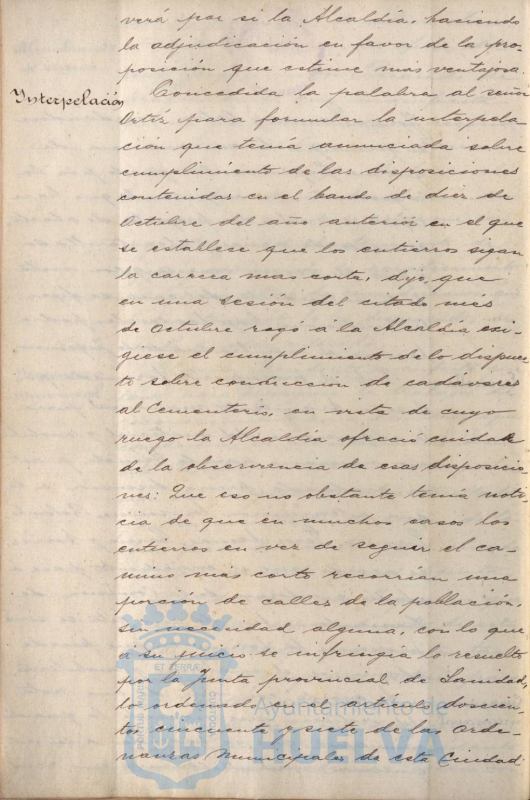 verá por si la Alcaldía, haciendo
la adjudicación en favor de la pro-
posición que estime mas ventajosa.
Interpelación
Concedida la palabra al señor
Ortíz para formular la interpela-
ción que tenía anunciada sobre
cumplimiento de las disposiciones
contenidas en el bando de diez de
Octubre del año anterior en el que
se establece que los entierros sigan
la carrera mas corta, dijo, que
en una sesión del citado mes
de Octubre rogó á la Alcaldía exi-
giese el cumplimiento de lo dispues-
to sobre conducción de cadáveres
al Cementerio, en vista de cuyo
ruego la Alcaldía ofreció cuidar
de la observancia de esas disposicio-
nes: Que eso no obstante tenía noti-
cia de que en muchos casos los
entierros en vez de seguir el ca-
mino más corto recorrían una
porción de calles de la población,
sin necesidad alguna, con lo que
a su juicio se infringía lo resuelto
por la Junta provincial de Sanidad,
lo ordenado en el artículo doscien-
tos cincuenta y siete de las Orde-
nanzas Municipales de esta Ciudad
Ayuntamiento de
HUELVA